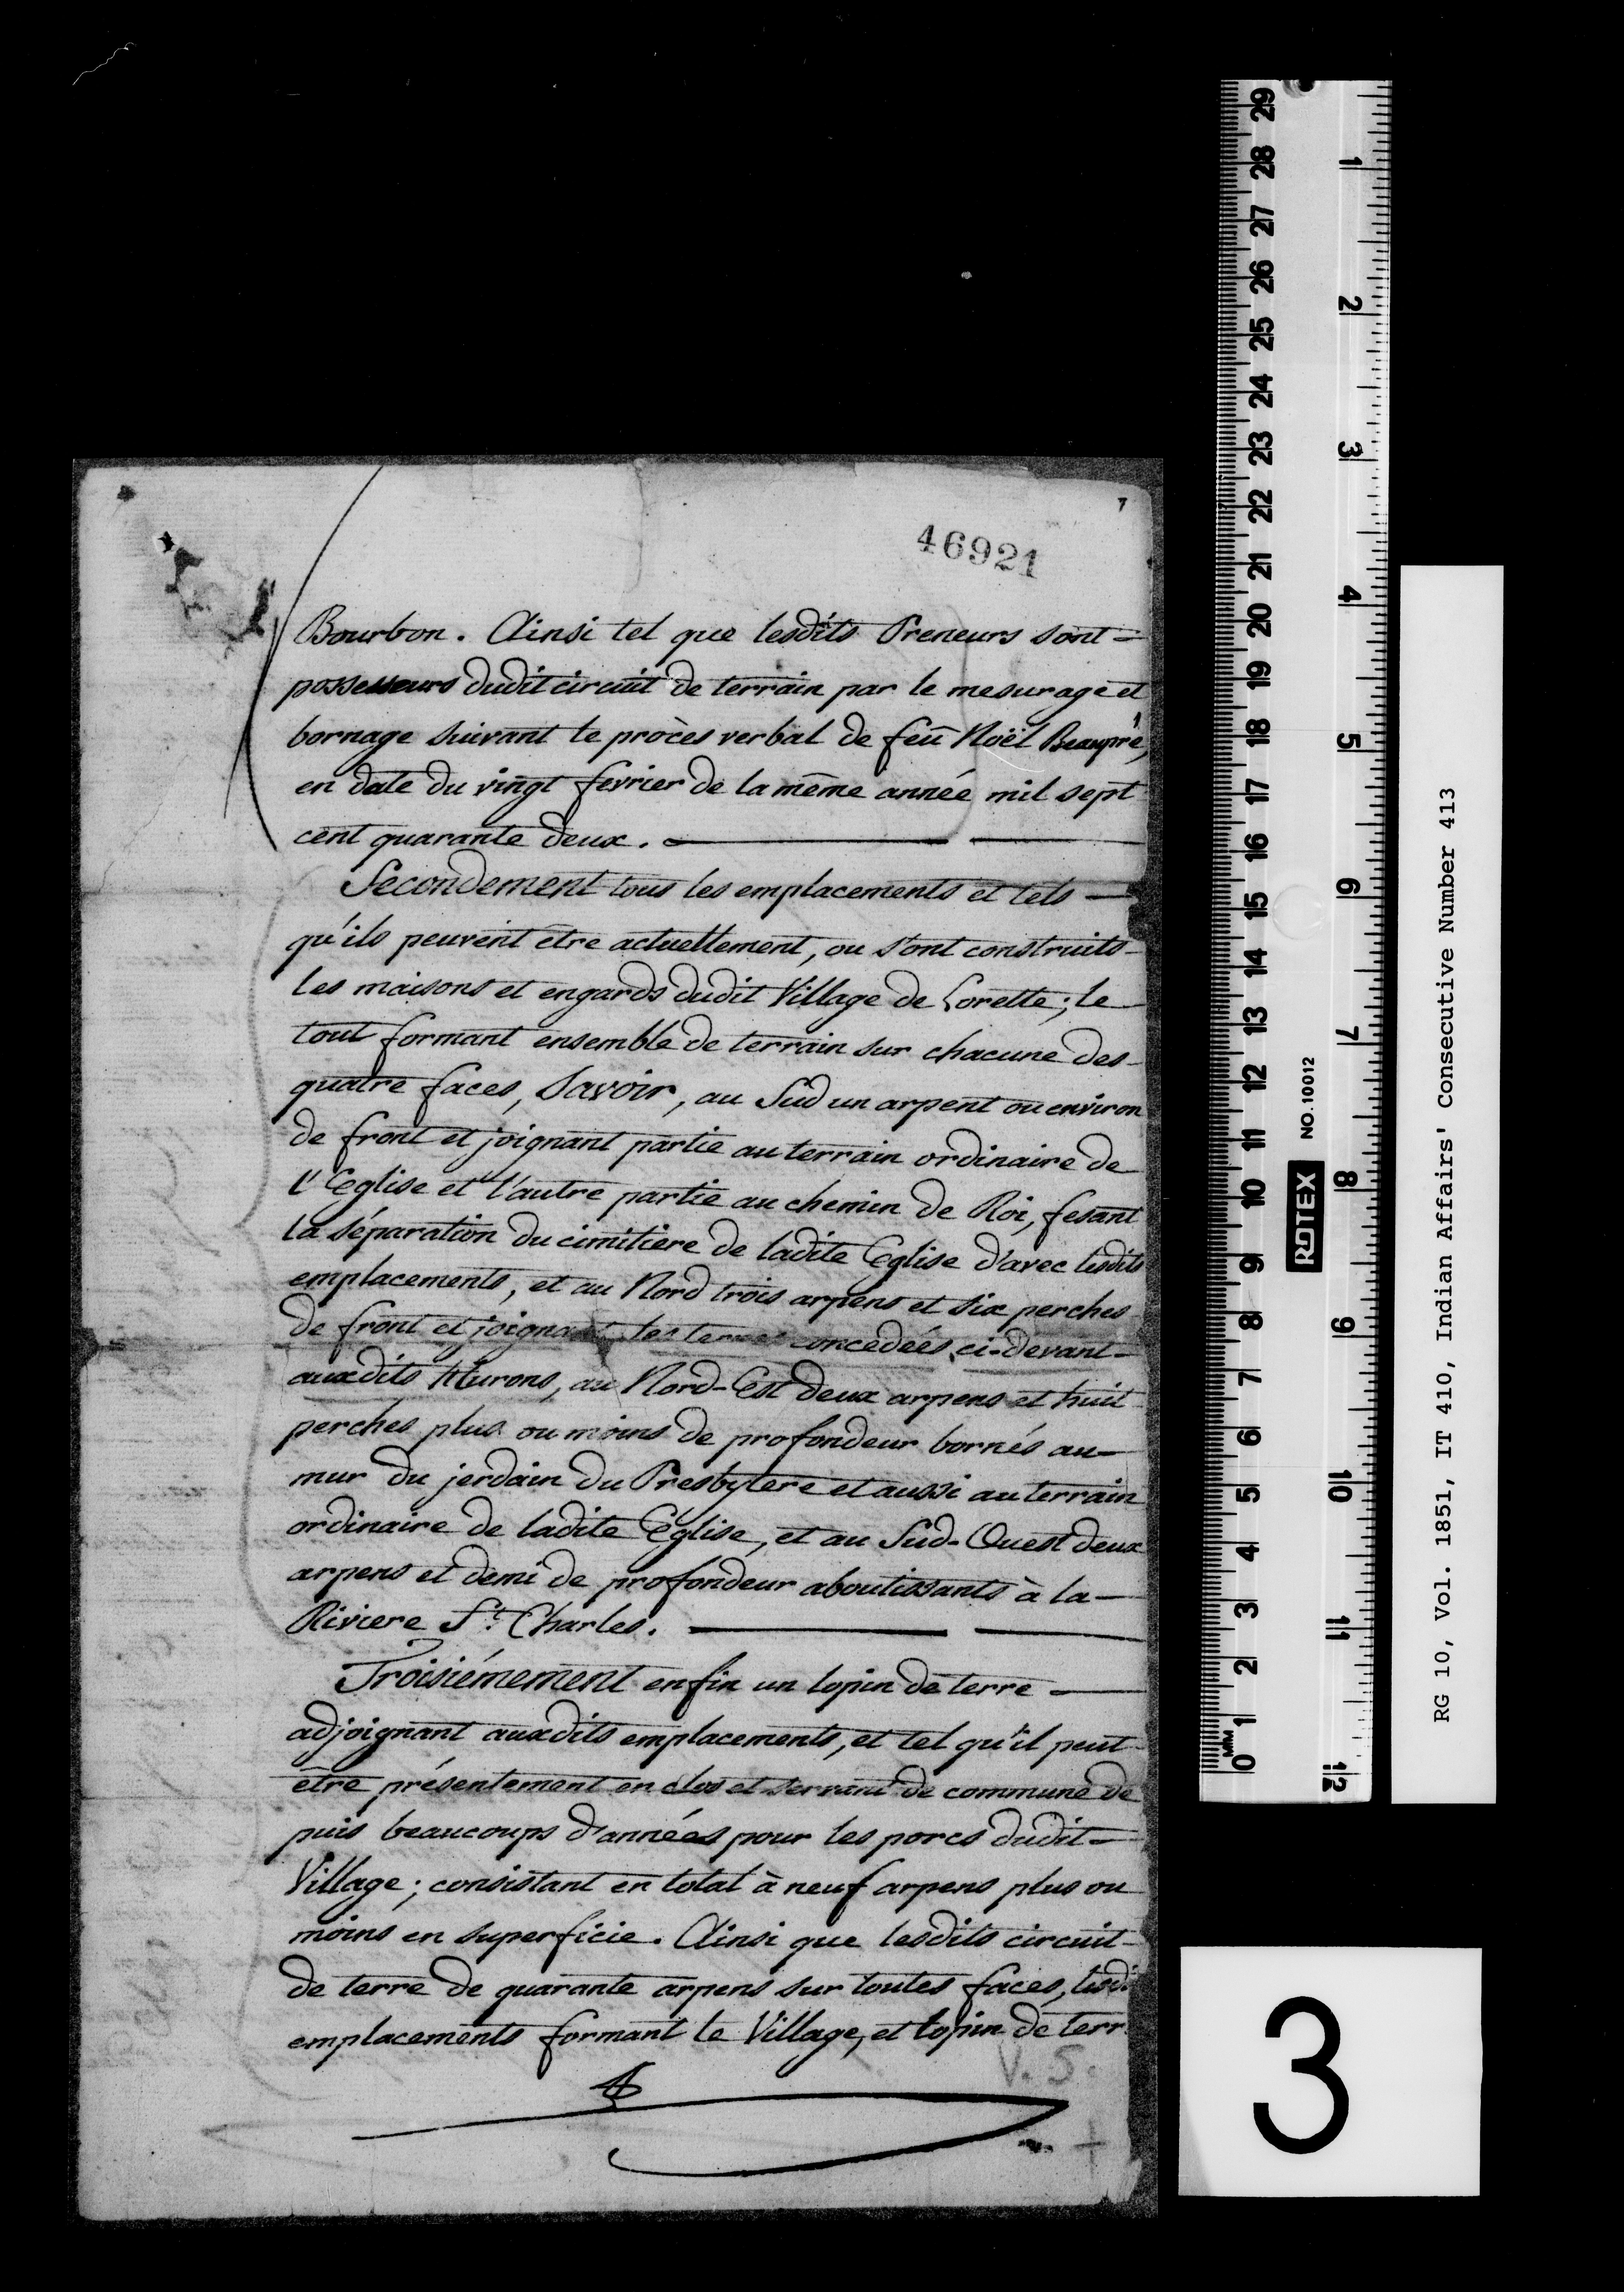 46921
Bourbon. Ainsi tel que lesdits Preneurs sont
possesseurs dudit circuit de terrain par le mesurage et
bornage suivant le procès verbal de feû Noël Beaupré,
en date du vingt fevrier de la même année mil sept
cent quarante deux.
Secondement tous les emplacements et tels
qu'ils peuvent être actuellement, ou s'ont construits
les maisons et engards dudit Village de Lorette; le
tout formant ensemble de terrain sur chacune des
quatre faces, Savoir, au Sud un arpent ou environ
de front et joignant partie au terrain ordinaire de
l'Eglise et l'autre partie au chemin de Roi, fesant
la séparation du cimitière de ladite Eglise d'avec lesdits
emplacements, et au Nord trois arpens et six perches
de front et joignant les terres concedées ci-devant
auxdits Hurons, au Nord-Est deux arpens et huit
perches plus ou moins de profondeur bornés au
mur du jerdain du Presbytere et aussi au terrain
ordinaire de ladite Eglise, et au Sud-Ouest deux
arpens et demi de profondeur aboutissants à la
Riviere St. Charles.
Troisiémement enfin un lopin de terre
adjoignant auxdits emplacements, et tel qu'il peut
être présentement en clos et servant de commune de
puis beaucoups d'années pour les porcs dudit
Village; consistant en total à neuf arpens plus ou
moins en superficie. Ainsi que lesdits circuit
de terre de quarante arpens sur toutes faces, lesd.
emplacements formant le Village, et lopin de terr
V. S.
RG 10, Vol. 1851, IT 410, Indian Affairs' Consecutive Number 413
3
ROTEX NO. 10012
MM 0 1 2 3 4 5 6 7 8 9 10 11 12 13 14 15 16 17 18 19 20 21 22 23 24 25 26 27 28 29
1 2 3 4 5 6 7 8 9 10 11 12